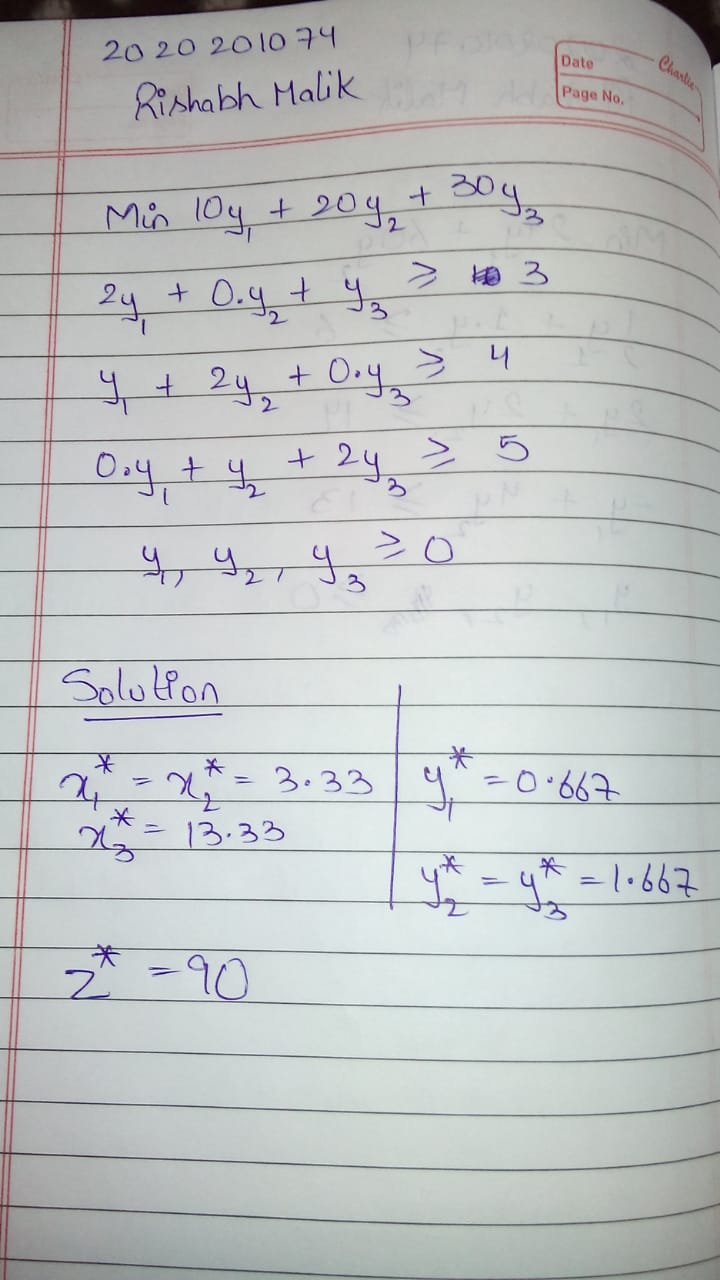 2020201074
Rishabh Malik
Date
Charlie
Page No.
Min 10y₁ + 20y₂ + 30y₃
2y₁ + 0.y₂ + y₃ ≥ 3
y₁ + 2y₂ + 0.y₃ ≥ 4
0.y₁ + y₂ + 2y₃ ≥ 5
y₁, y₂, y₃ ≥ 0
Solution
x₁* = x₂* = 3.33
x₃* = 13.33
y₁* = 0.667
y₂* = y₃* = 1.667
z* = 90